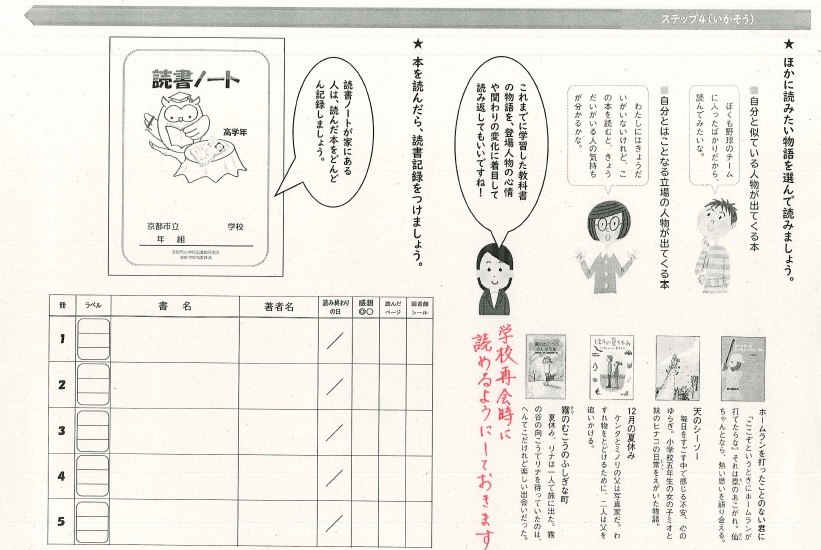 ステップ4(いかそう)
★ ほかに読みたい物語を選んで読みましょう。
■自分と似ている人物が出てくる本
ぼくも野球のチーム
に入ったばかりだから、
読んでみたいな。
■自分とはことなる立場の人物が出てくる本
わたしにはきょうだ
いがいないけれど、こ
の本を読むと、きょう
だいがいる人の気持ち
が分かるかな。
ホームランを打ったことのない君に
「ここぞというときにホームランが
打てたらな」それは亮のあこがれ。仙
ちゃんとなら、熱い思いを語り合える。
天のシーソー
毎日をすごす中で感じる不安、心の
ゆらぎ。小学校五年生の女の子ミオと
妹のヒナコの日常をえがいた物語。
12月の夏休み
ケンタとミノリの父は写真家だ。わ
すれ物をとどけるために、二人は父を
追いかける。
霧のむこうのふしぎな町
夏休み、リナは一人で旅に出た。霧
の谷の向こうでリナを待っていたのは、
へんてこだけれど楽しい出会いだった。
これまでに学習した教科書
の物語を、登場人物の心情
や関わりの変化に着目して
読み返してもいいですね!
学校再会時に
読めるようにしておきます
★ 本を読んだら、読書記録をつけましょう。
読書ノートが家にある
人は、読んだ本をどんど
ん記録しましょう。
読書ノート
高学年
京都市立 学校
年 組
冊 ラベル 書名 著者名 読み終わりの日 感想◎○ 読んだページ 図書館シール
1 /
2 /
3 /
4 /
5 /